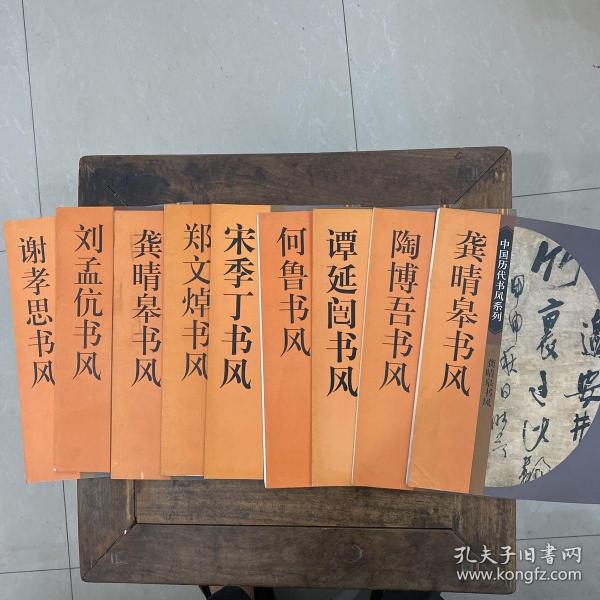 谢孝思书风
刘孟伉书风
龚晴皋书风
郑文焯书风
宋季丁书风
何鲁书风
谭延闿书风
陶博吾书风
龚晴皋书风
中国历代书风系列
龚晴皋书风
孔夫子旧书网
www.kongfz.com